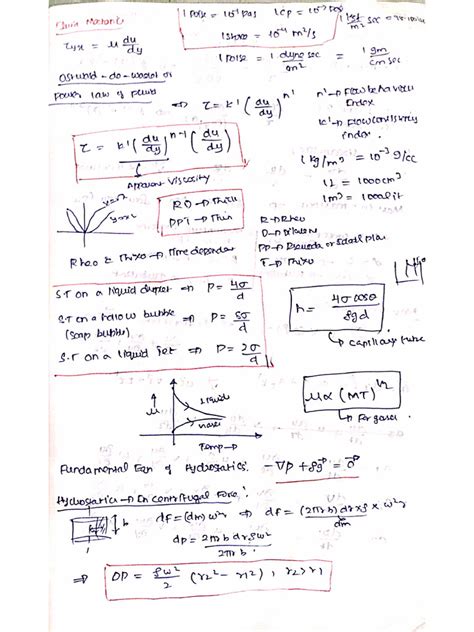 Fluid Mechanics
1 Poise = 10⁻¹ Pas 1 cp = 10⁻³ Pas
τyx = μ du/dy
1 Stoke = 10⁻⁴ m²/s
1 Poise = 1 dyne sec / cm² = 1 gm / cm sec
Ostwald-de-waal or
Power law of fluids
⇒ τ = k' (du/dy)^n'
n' → Flow behaviour
Index
k' → Flow consistency
index.
τ = k' (du/dy)^n-1 (du/dy)
Apparent Viscosity
1 kg/m³ = 10⁻³ g/cc
1L = 1000 cm³
1m³ = 1000 lit
RD → Thick
PPT → Thin
R → Rheo
D → Dilatant
PP → Pseudo plas
T → Thixo
Rheo & Thixo → Time dependent
S.T on a liquid droplet ⇒ P = 4σ/d
S.T on a hollow bubble ⇒ P = 8σ/d
(soap bubble)
S.T on a liquid jet ⇒ P = 2σ/d
h = 4σ cosθ / ρgd
↳ capillary tube
μ
liquid
gases
Temp →
μ α (MT)^1/2
↳ For gases
Fundamental Eqn of Hydrostatics. -∇p + ρg = 0
Hydrostatics → In centrifugal Force:
b
dF = (dm) ω²r ⇒ dF = (2πrb) drxρ x ω²r
dm
dp = 2πrb drρω²r / 2πrb
⇒ ΔP = ρω²/2 (r2² - r1²), r2>r1